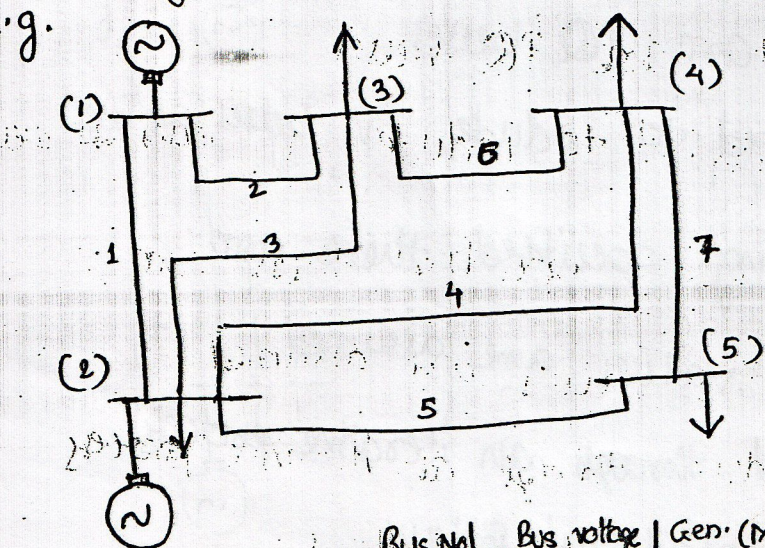 .g.
~
(1)
(3)
(4)
2
6
1
3
7
4
(2)
(5)
5
~
Bus No | Bus voltage | Gen.